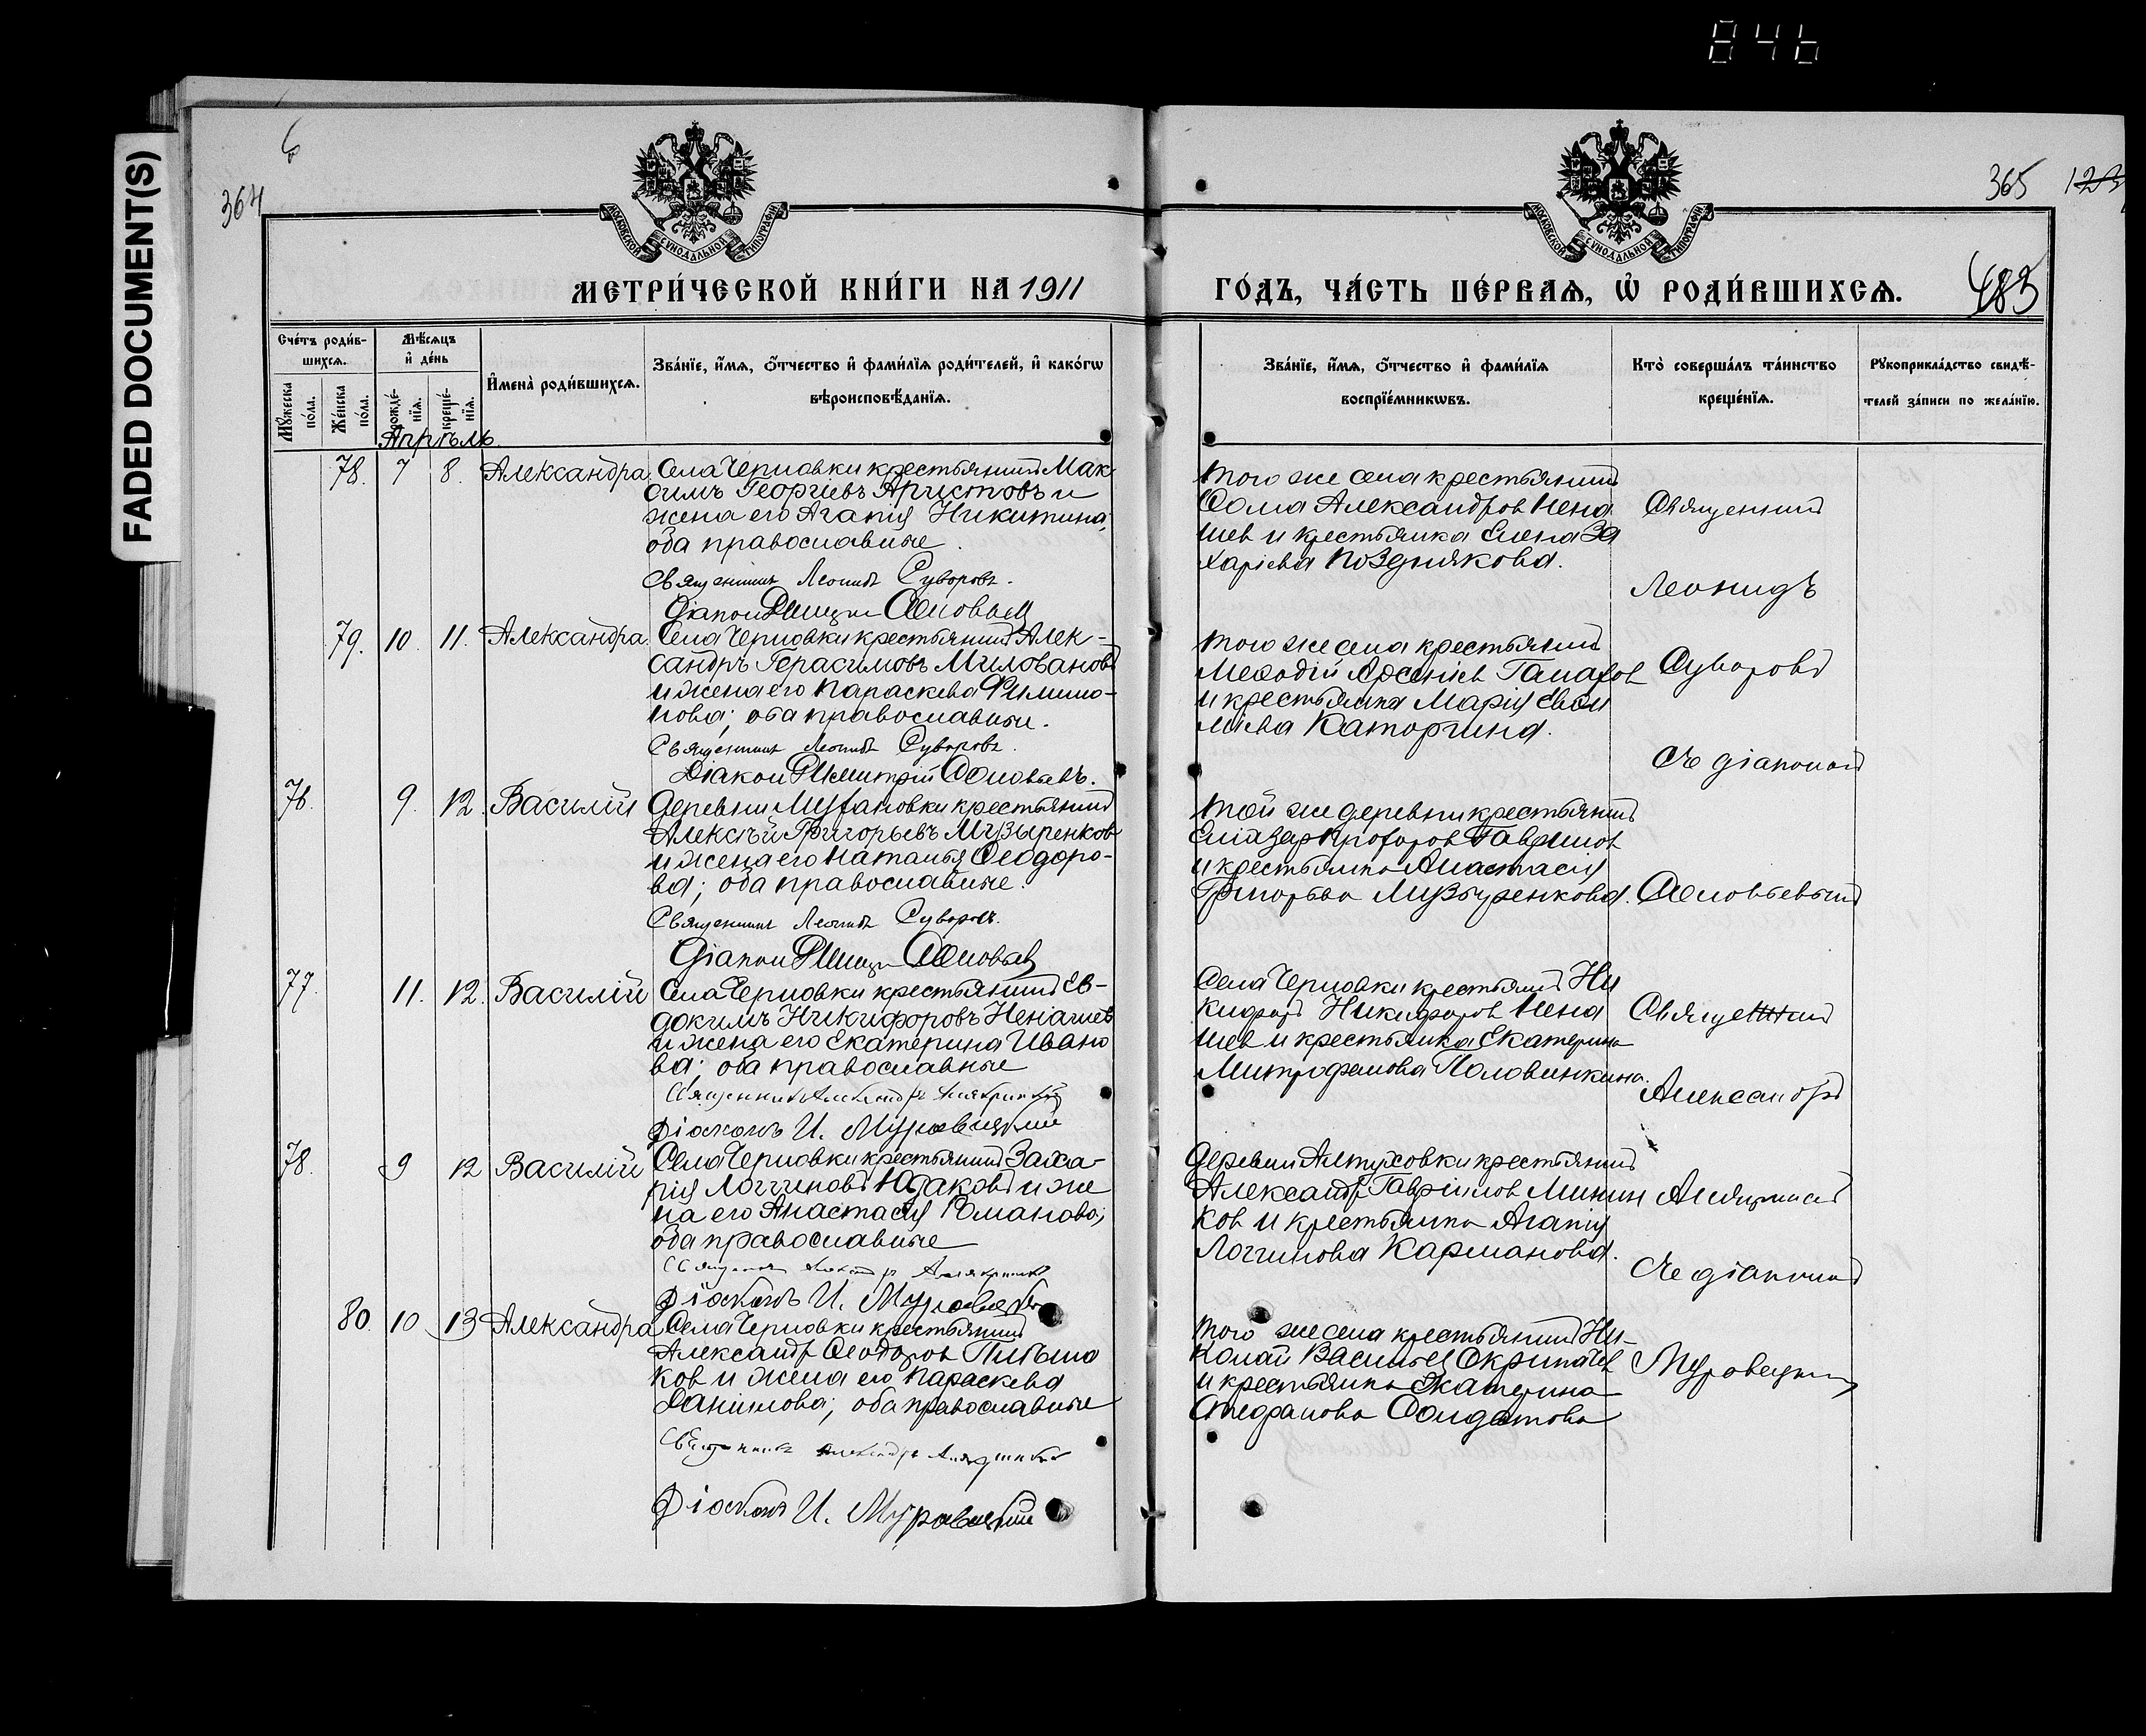 846
FADED DOCUMENT(S)
6
364
365
МОСКОВСКОЙ СѴНОДАЛЬНОЙ ТИПОГРАФІИ
МОСКОВСКОЙ СѴНОДАЛЬНОЙ ТИПОГРАФІИ
МЕТРИ́ЧЕСКОЙ КНИ́ГИ НА 1911
ГО́ДЪ, ЧА́СТЬ ПЕ́РВАѦ, Ѡ҆ РОДИ́ВШИХСѦ.
483
Сче́тъ роди́в-
шихсѧ.
Мѹжеска по́ла.
Же́нска по́ла.
Мѣ́сѧцъ
и҆ де́нь
рожде́-нїѧ.
креще́-нїѧ.
И҆мена̀ роди́вшихсѧ.
Зва́нїе, и҆́мѧ, ѻ҆́тчество и҆ фами́лїѧ роди́телей, и҆ како́гѡ
вѣроисповѣ́данїѧ.
Зва́нїе, и҆́мѧ, ѻ҆́тчество и҆ фами́лїѧ
воспрїе́мникѡвъ.
Кто̀ соверша́лъ та́инство
креще́нїѧ.
Рѹкоприкла́дство свидѣ́-
телей за́писи по жела́нїю.
Апрѣль
78. 7 8. Александра
Села Черновки крестьянинъ Мак
симъ Георгіевъ Аристовъ и
жена его Агапія Никитина;
оба православные.
Священникъ Леонидъ Суворовъ.
Діаконъ Димитрій Соловьевъ
того же села крестьянинъ
Ѳома Александров Нена
шев и крестьянка Елена За
харіева Позднякова.
Священник
Леонидъ
Суворовъ
съ діакономъ
Соловьевымъ
79. 10. 11. Александра
Села Черновки крестьянинъ Алек-
сандръ Герасимовъ Миловановъ
и жена его Параскева Филимо-
нова; оба православные.
Священникъ Леонидъ Суворовъ.
Діаконъ Димитрій Соловьевъ.
того же села крестьянинъ
Меѳодій Арсеніев
и крестьянка Марія Евѳи
міева Каторгина.
76. 9. 12. Василій
Деревни крестьянинъ
Алексѣй Григорьевъ Музыренков
и жена его Наталья Ѳеодоро-
ва; оба православные.
Священникъ Леонидъ Суворовъ.
Діаконъ Димитрій Соловьевъ
той же деревни крестьянинъ
Елиазар Прохоров Гаврилов
и крестьянка Анастасія
Григорьева Музыренкова.
77. 11. 12. Василій
Села Черновки крестьянинъ Ев-
докимъ Никифоровъ Ненашев
и жена его Екатерина Ивано
ва; оба православные
Священникъ Александръ
Діаконъ И. Муравецкій
Села Черновки крестьянинъ Ни
кифоръ Никифоров Нена
шев и крестьянка Екатерина
Митрофанова Половинкина.
Священник
Александръ
съ діакономъ
78. 9 12 Василій
Села Черновки крестьянинъ Заха-
рія Логгиновъ Юдаковъ и же
на его Анастасія Романова;
оба православные
Священникъ Александръ
Діаконъ И. Муравецкій
Деревни Алтуховки крестьянинъ
Александр Гавріилов
ков и крестьянка Агапія
Логгинова Карманова.
80. 10 13 Александра
Села Черновки крестьянинъ
Александр Ѳеодоров
ков и жена его Параскева
Даніилова; оба православные
Священникъ Александръ
Діаконъ И. Муравецкій
того же села крестьянинъ Ни-
колай Васильев Скрипачев
и крестьянка Екатерина
Стефанова Солдатова